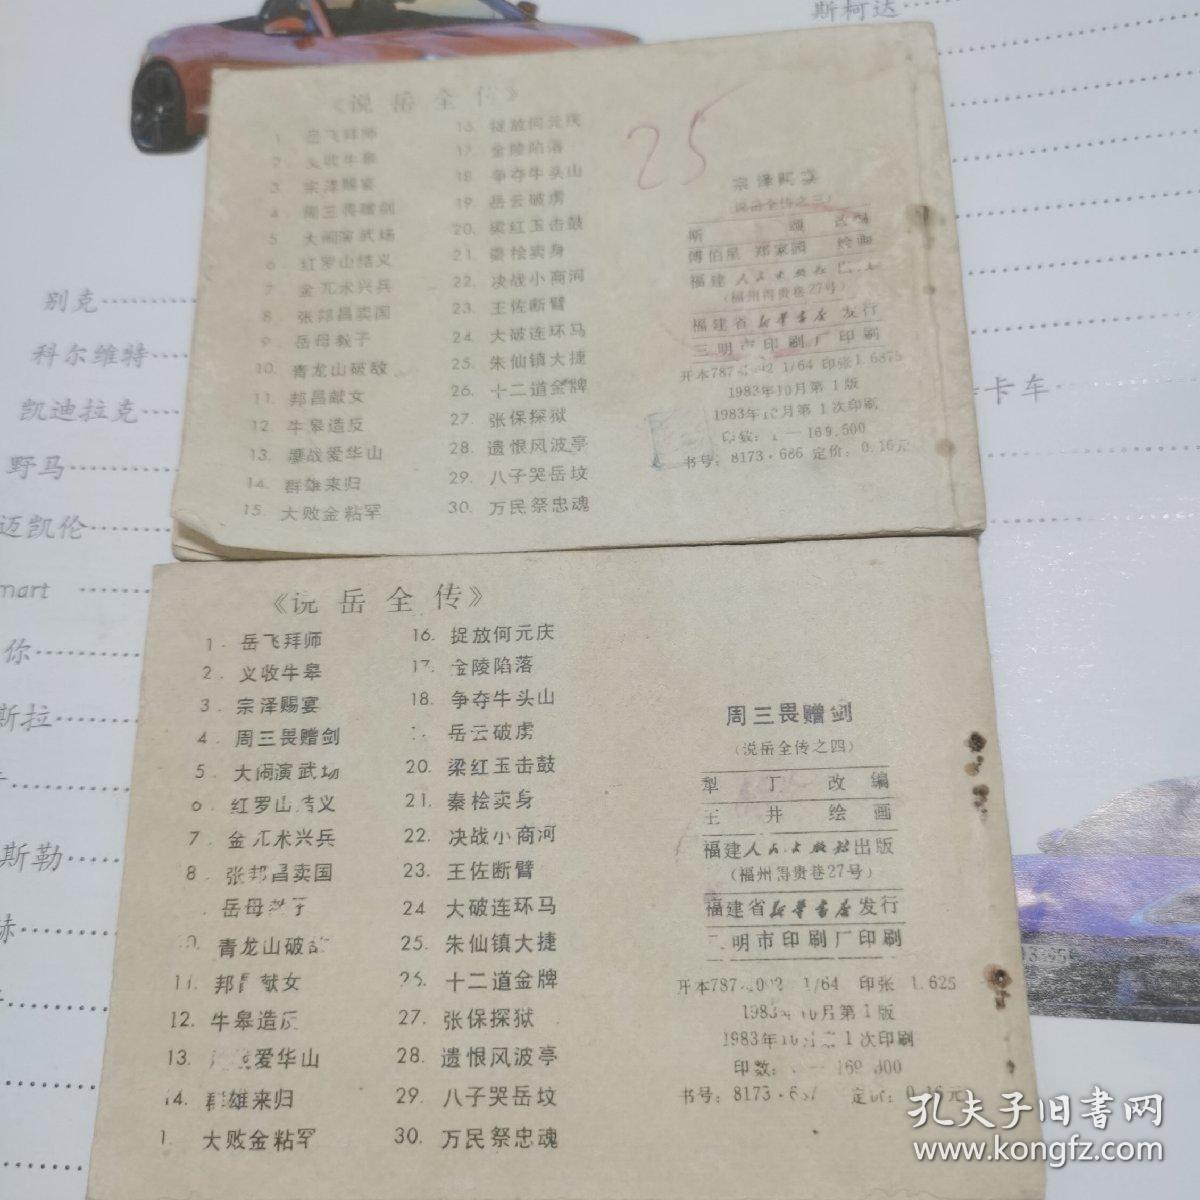 斯柯达
别克
科尔维特
凯迪拉克
野马
迈凯伦
mart
你
斯拉
斯勒
卡车
《说岳全传》
1. 岳飞拜师
2. 义收牛皋
3. 宗泽赐宴
4. 周三畏赠剑
5. 大闹演武场
6. 红罗山结义
7. 金兀术兴兵
8. 张邦昌卖国
9. 岳母教子
10. 青龙山破敌
11. 邦昌献女
12. 牛皋造反
13. 鏖战爱华山
14. 群雄来归
15. 大败金粘罕
16. 捉放何元庆
17. 金陵陷落
18. 争夺牛头山
19. 岳云破虏
20. 梁红玉击鼓
21. 秦桧卖身
22. 决战小商河
23. 王佐断臂
24. 大破连环马
25. 朱仙镇大捷
26. 十二道金牌
27. 张保探狱
28. 遗恨风波亭
29. 八子哭岳坟
30. 万民祭忠魂
25
宗泽赐宴
(说岳全传之三)
斯 颂 改编
傅伯星 郑家 绘画
福建人民出版社出版
(福州得贵巷27号)
福建省新华书店发行
三明市印刷厂印刷
开本787 1/64 印张1.6875
1983年10月第1版
1983年10月第1次印刷
印数: 1—169,500
书号: 8173·686 定价: 0.16元
《说岳全传》
1. 岳飞拜师
2. 义收牛皋
3. 宗泽赐宴
4. 周三畏赠剑
5. 大闹演武场
6. 红罗山结义
7. 金兀术兴兵
8. 张邦昌卖国
岳母教子
青龙山破敌
11. 邦昌献女
12. 牛皋造反
13. 爱华山
14. 群雄来归
大败金粘罕
16. 捉放何元庆
17. 金陵陷落
18. 争夺牛头山
岳云破虏
20. 梁红玉击鼓
21. 秦桧卖身
22. 决战小商河
23. 王佐断臂
24 大破连环马
25. 朱仙镇大捷
26. 十二道金牌
27. 张保探狱
28. 遗恨风波亭
29. 八子哭岳坟
30. 万民祭忠魂
周三畏赠剑
(说岳全传之四)
犁 丁 改编
王 井 绘画
福建人民出版社出版
(福州得贵巷27号)
福建省新华书店发行
明市印刷厂印刷
开本787 1/64 印张 1.625
1983年10月第1版
1983年10月第1次印刷
印数: —169
书号: 8173·687 定价: 0.16元
孔夫子旧书网
www.kongfz.com